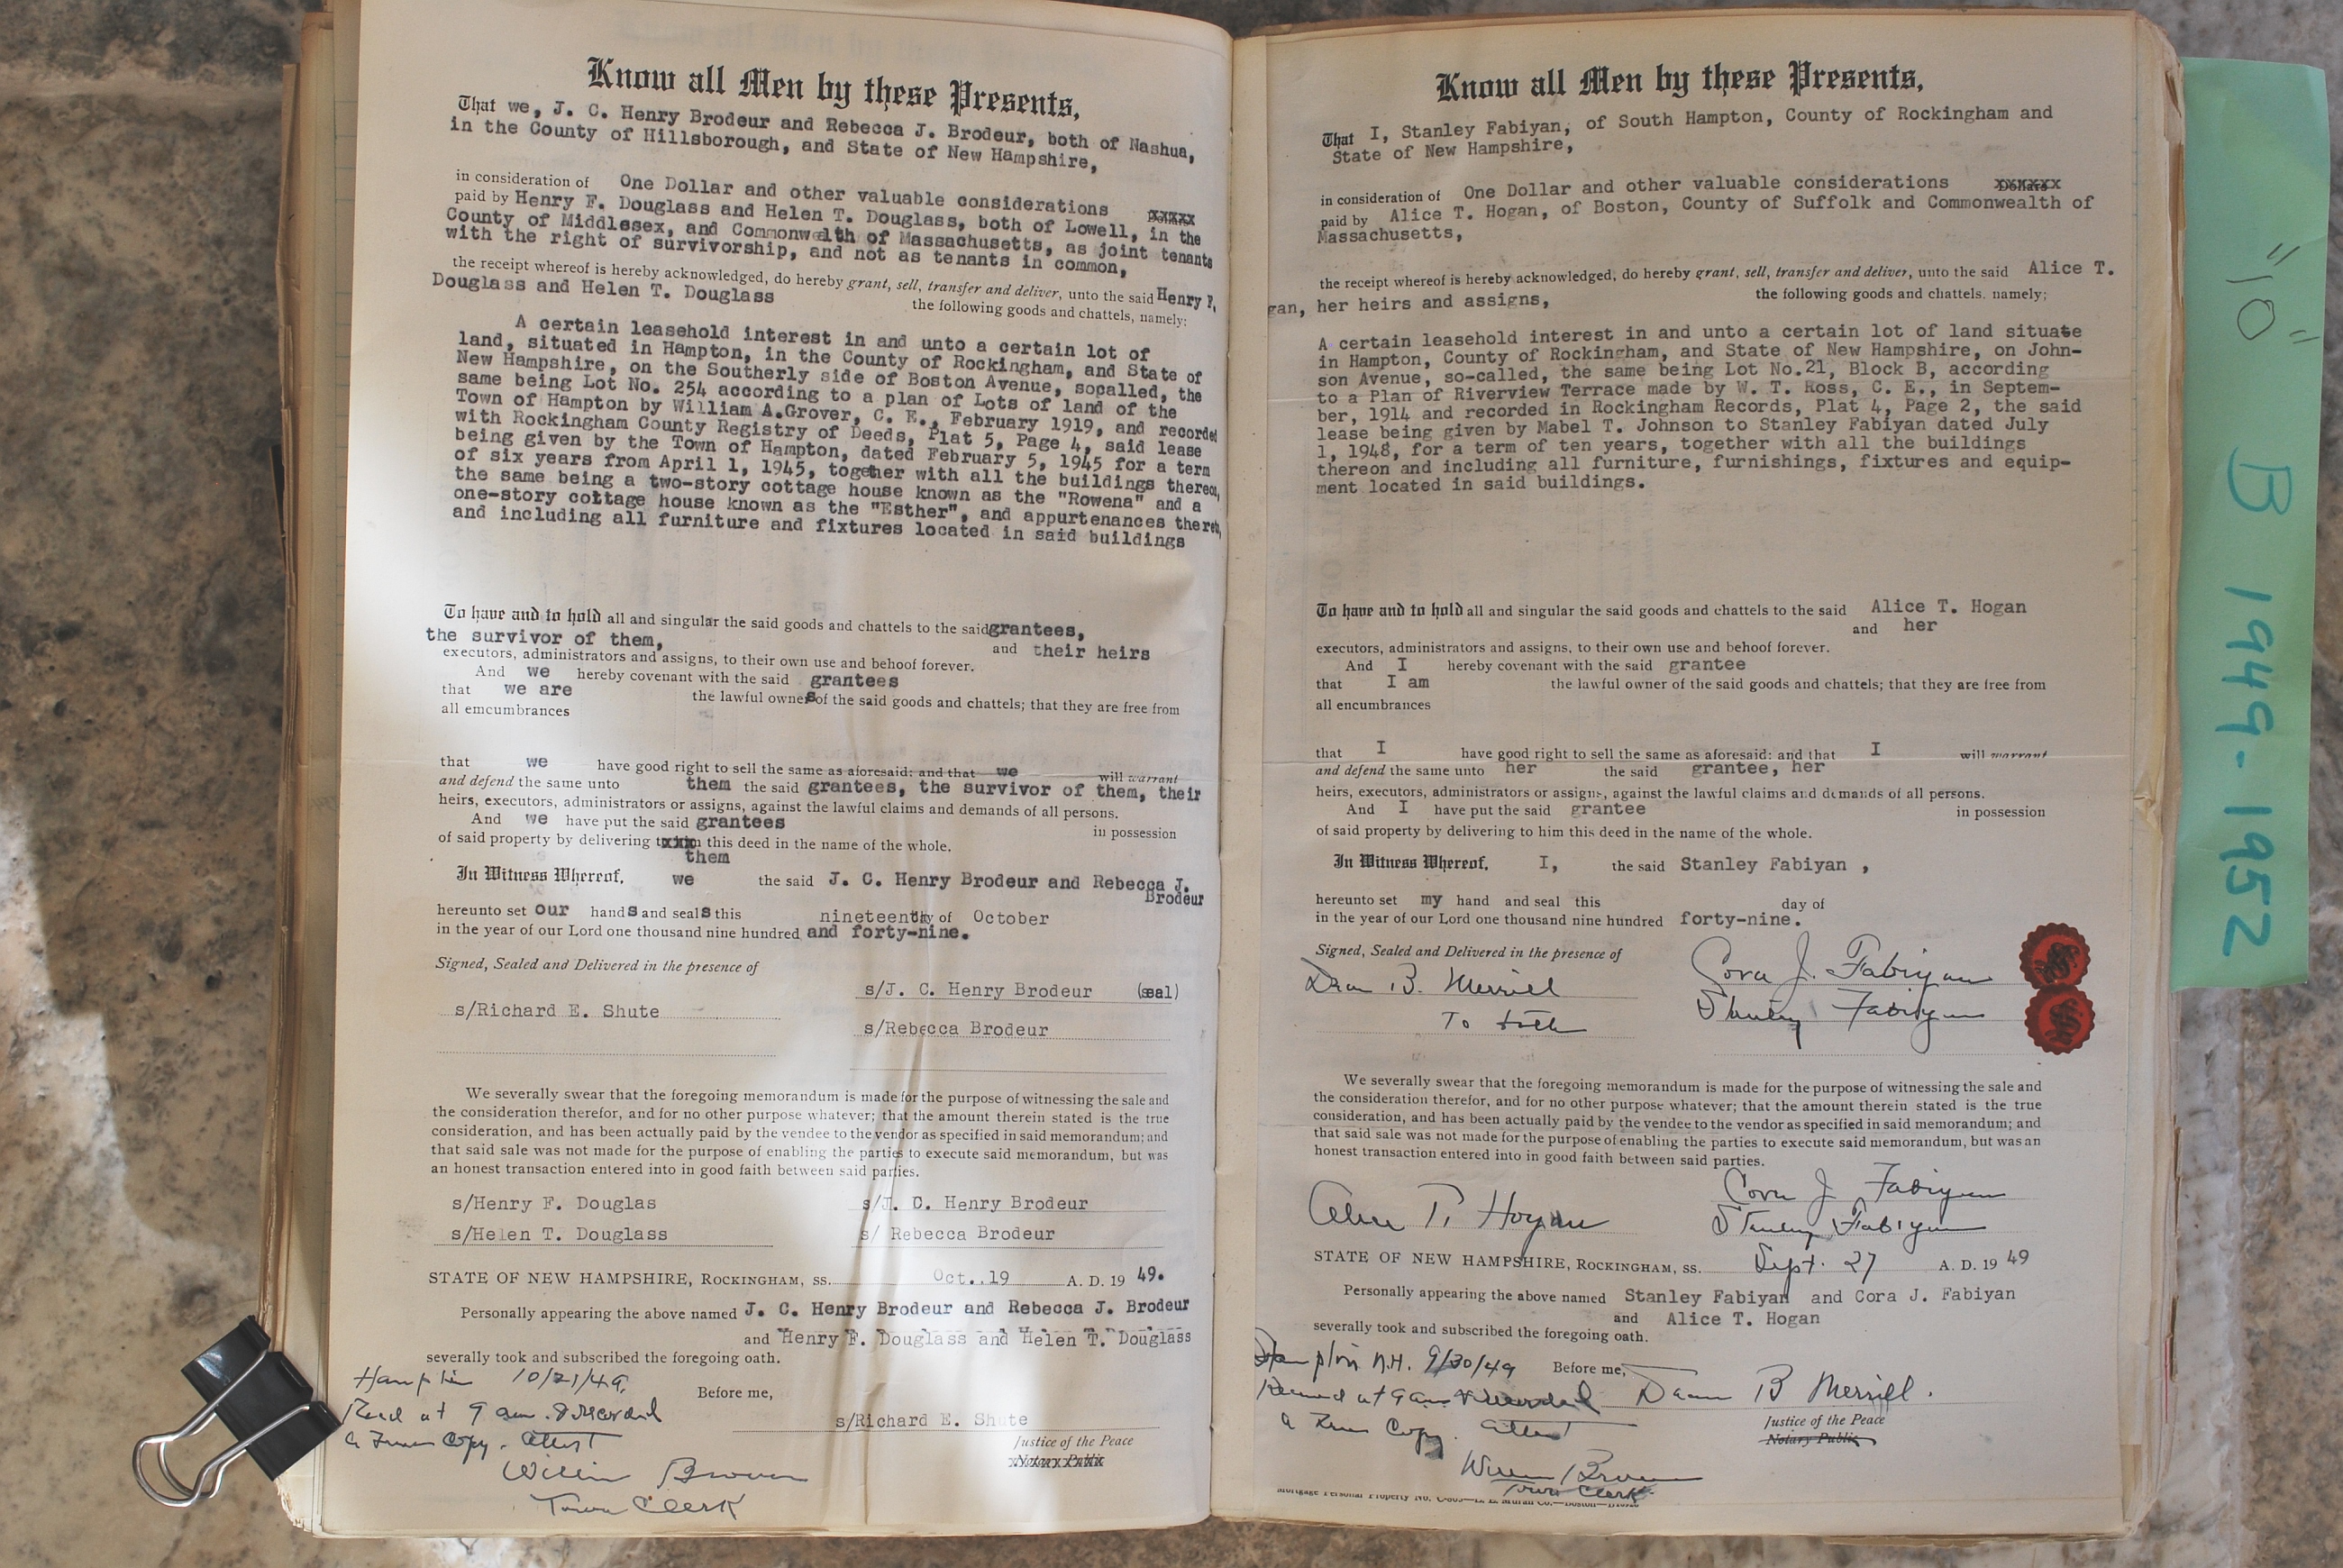 Know all Men by these Presents,
That we, J. C. Henry Brodeur and Rebecca J. Brodeur, both of Nashua,
in the County of Hillsborough, and State of New Hampshire,
in consideration of One Dollar and other valuable considerations
paid by Henry F. Douglass and Helen T. Douglass, both of Lowell, in the
County of Middlesex, and Commonwealth of Massachusetts, as joint tenants
with the right of survivorship, and not as tenants in common,
the receipt whereof is hereby acknowledged, do hereby grant, sell, transfer and deliver, unto the said Henry F.
Douglass and Helen T. Douglass the following goods and chattels, namely:
A certain leasehold interest in and unto a certain lot of
land, situated in Hampton, in the County of Rockingham, and State of
New Hampshire, on the Southerly side of Boston Avenue, socalled, the
same being Lot No. 254 according to a plan of Lots of land of the
Town of Hampton by William A.Grover, C. E., February 1919, and recorded
with Rockingham County Registry of Deeds, Plat 5, Page 4, said lease
being given by the Town of Hampton, dated February 5, 1945 for a term
of six years from April 1, 1945, together with all the buildings thereon,
the same being a two-story cottage house known as the "Rowena" and a
one-story cottage house known as the "Esther", and appurtenances thereto,
and including all furniture and fixtures located in said buildings
To have and to hold all and singular the said goods and chattels to the said grantees,
the survivor of them, and their heirs
executors, administrators and assigns, to their own use and behoof forever.
And we hereby covenant with the said grantees
that we are the lawful owners of the said goods and chattels; that they are free from
all emcumbrances
that we have good right to sell the same as aforesaid: and that we will warrant
and defend the same unto them the said grantees, the survivor of them, their
heirs, executors, administrators or assigns, against the lawful claims and demands of all persons.
And we have put the said grantees in possession
of said property by delivering this deed in the name of the whole.
them
In Witness Whereof, we the said J. C. Henry Brodeur and Rebecca J.
Brodeur
hereunto set our hands and seals this nineteenth day of October
in the year of our Lord one thousand nine hundred and forty-nine.
Signed, Sealed and Delivered in the presence of
s/J. C. Henry Brodeur (seal)
s/Richard E. Shute
s/Rebecca Brodeur
We severally swear that the foregoing memorandum is made for the purpose of witnessing the sale and
the consideration therefor, and for no other purpose whatever; that the amount therein stated is the true
consideration, and has been actually paid by the vendee to the vendor as specified in said memorandum; and
that said sale was not made for the purpose of enabling the parties to execute said memorandum, but was
an honest transaction entered into in good faith between said parties.
s/Henry F. Douglas s/J. C. Henry Brodeur
s/Helen T. Douglass s/ Rebecca Brodeur
STATE OF NEW HAMPSHIRE, ROCKINGHAM, SS. Oct. 19 A. D. 19 49.
Personally appearing the above named J. C. Henry Brodeur and Rebecca J. Brodeur
and Henry F. Douglass and Helen T. Douglass
severally took and subscribed the foregoing oath.
Hampton 10/21/49. Before me,
Recd at 9 am. & recorded
s/Richard E. Shute
a True Copy. Attest
Justice of the Peace
Notary Public
William Brown
Town Clerk
Know all Men by these Presents,
That I, Stanley Fabiyan, of South Hampton, County of Rockingham and
State of New Hampshire,
in consideration of One Dollar and other valuable considerations Dollars
paid by Alice T. Hogan, of Boston, County of Suffolk and Commonwealth of
Massachusetts,
the receipt whereof is hereby acknowledged, do hereby grant, sell, transfer and deliver, unto the said Alice T.
gan, her heirs and assigns, the following goods and chattels, namely;
A certain leasehold interest in and unto a certain lot of land situate
in Hampton, County of Rockingham, and State of New Hampshire, on John-
son Avenue, so-called, the same being Lot No.21, Block B, according
to a Plan of Riverview Terrace made by W. T. Ross, C. E., in Septem-
ber, 1914 and recorded in Rockingham Records, Plat 4, Page 2, the said
lease being given by Mabel T. Johnson to Stanley Fabiyan dated July
1, 1948, for a term of ten years, together with all the buildings
thereon and including all furniture, furnishings, fixtures and equip-
ment located in said buildings.
To have and to hold all and singular the said goods and chattels to the said Alice T. Hogan
and her
executors, administrators and assigns, to their own use and behoof forever.
And I hereby covenant with the said grantee
that I am the lawful owner of the said goods and chattels; that they are free from
all encumbrances
that I have good right to sell the same as aforesaid: and that I will warrant
and defend the same unto her the said grantee, her
heirs, executors, administrators or assigns, against the lawful claims and demands of all persons.
And I have put the said grantee in possession
of said property by delivering to him this deed in the name of the whole.
In Witness Whereof, I, the said Stanley Fabiyan ,
hereunto set my hand and seal this day of
in the year of our Lord one thousand nine hundred forty-nine.
Signed, Sealed and Delivered in the presence of
Cora J. Fabiyan
Dean B. Merrill
Stanley Fabiyan
To both
We severally swear that the foregoing memorandum is made for the purpose of witnessing the sale and
the consideration therefor, and for no other purpose whatever; that the amount therein stated is the true
consideration, and has been actually paid by the vendee to the vendor as specified in said memorandum; and
that said sale was not made for the purpose of enabling the parties to execute said memorandum, but was an
honest transaction entered into in good faith between said parties.
Cora J Fabiyan
Alice T. Hogan Stanley Fabiyan
STATE OF NEW HAMPSHIRE, ROCKINGHAM, SS. Sept. 27 A. D. 19 49
Personally appearing the above named Stanley Fabiyan and Cora J. Fabiyan
and Alice T. Hogan
severally took and subscribed the foregoing oath.
Hampton N.H. 9/30/49 Before me,
Received at 9 am & recorded Dean B Merrill.
a True Copy. Attest
Justice of the Peace
Notary Public
William Brown
Town Clerk
Mortgage Personal Property No.
"10" B 1949-1952